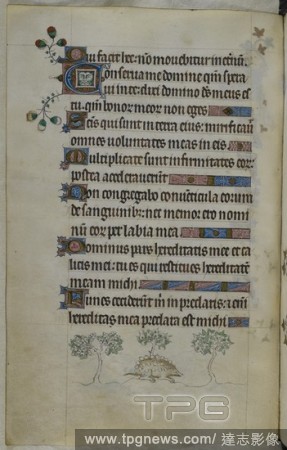 Qui facit hec: nō mouebitur in etnū.
Conserua me domine qm̄ spera
ui in te: dixi domino deus meus es
tu. qm̄ bonor meor non eges
Scis qui sunt in terra eius: mirificauī
omnes voluntates meas in eis
Multiplicate sunt infirmitates eor
postea accelerauerūt
Non congregabo conuēticula eorum
de sanguinibz: nec memor ero nomi
nū eor per labia mea
Dominus pars hereditatis mee et ca
licis mei: tu es qui restitues hereditatē
meam michi
Funes ceciderūt m̄ in preclaris: eteī
hereditas mea preclara est michi
TPG
www.tpgnews.com/ 達志影像